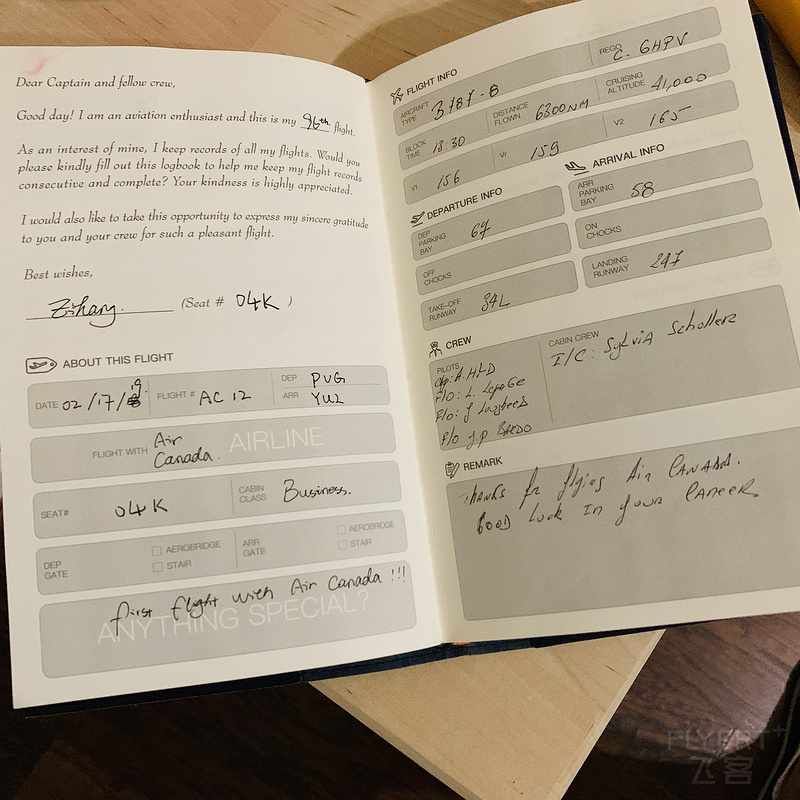 Dear Captain and fellow crew,
Good day! I am an aviation enthusiast and this is my 96th flight.
As an interest of mine, I keep records of all my flights. Would you
please kindly fill out this logbook to help me keep my flight records
consecutive and complete? Your kindness is highly appreciated.
I would also like to take this opportunity to express my sincere gratitude
to you and your crew for such a pleasant flight.
Best wishes,
(Seat # 04K )
ABOUT THIS FLIGHT
DATE 02/17/19. FLIGHT # AC 12 DEP PVG
ARR YUL
FLIGHT WITH Air Canada. AIRLINE
SEAT# 04K CABIN CLASS Business.
DEP GATE AEROBRIDGE STAIR ARR GATE AEROBRIDGE STAIR
first flight with Air Canada !!!
ANYTHING SPECIAL?
FLIGHT INFO REGO C-GHPV
AIRCRAFT TYPE B787-8 DISTANCE FLOWN 6300NM CRUISING ALTITUDE 41,000
BLOCK TIME 13:30 Vr 159 V2 165
V1 156
DEPARTURE INFO
DEP PARKING BAY 69
OFF CHOCKS
TAKE-OFF RUNWAY 34L
ARRIVAL INFO
ARR PARKING BAY 58
ON CHOCKS
LANDING RUNWAY 24R
CREW
PILOTS
F/O: L. Lepage
F/O: J
F/O J.P
CABIN CREW
I/C: Sylvia
REMARK
Thanks for flying Air CANADA.
GOOD Luck In your CAREER
FLYERT
飞客